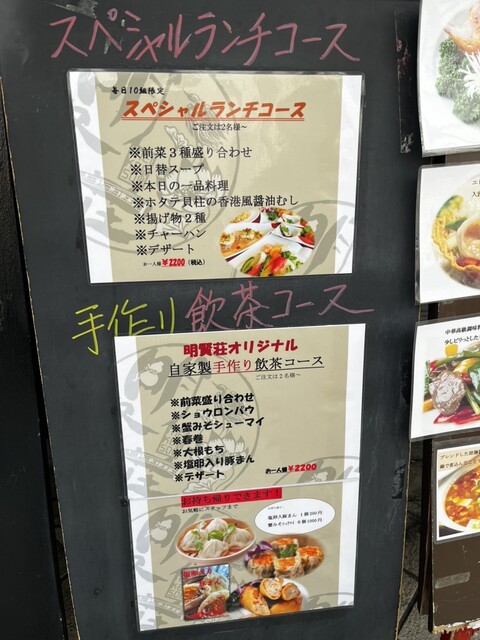 スペシャルランチコース
毎日10組限定
スペシャルランチコース
ご注文は2名様～
※前菜３種盛り合わせ
※日替スープ
※本日の一品料理
※ホタテ貝柱の香港風醤油むし
※揚げ物２種
※チャーハン
※デザート
お一人様￥2200（税込）
手作り飲茶コース
明賢荘オリジナル
自家製手作り飲茶コース
ご注文は２名様～
※前菜盛り合わせ
※ショウロンパウ
※蟹みそシューマイ
※春巻
※大根もち
※塩卵入り豚まん
※デザート
お一人様￥2200
お持ち帰りできます！
お気軽にスタッフまで